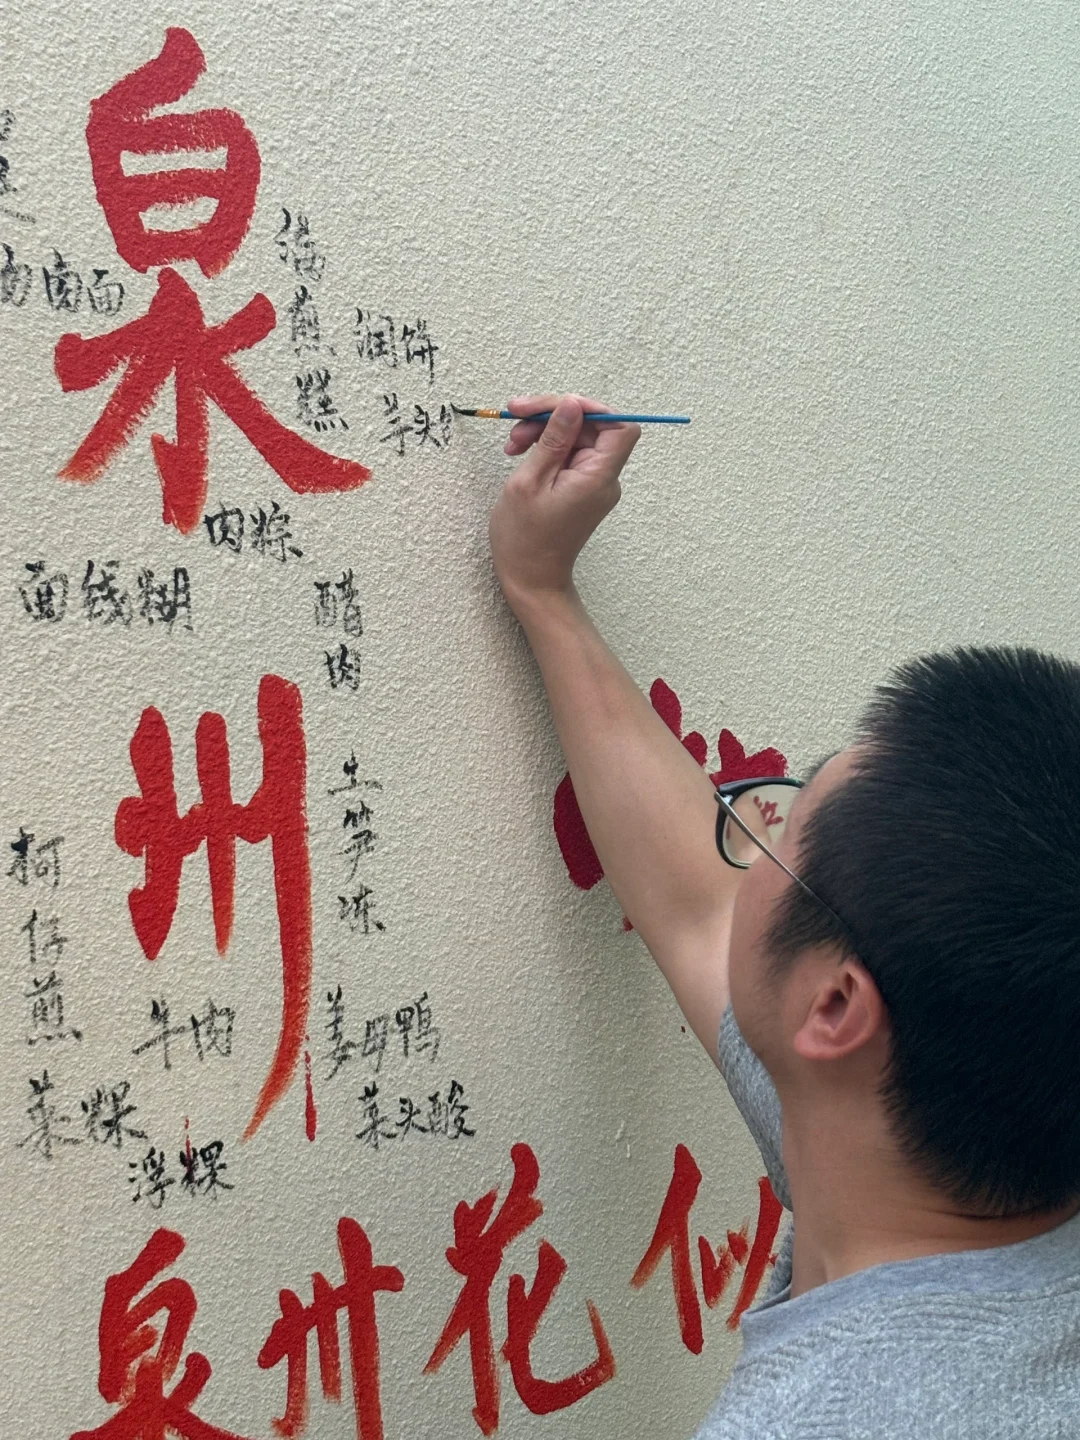 泉
州
卤面
满煎糕
润饼
芋头
肉粽
面线糊
醋肉
土笋冻
蚵仔煎
牛肉
姜母鸭
菜粿
菜头酸
浮粿
泉州花似